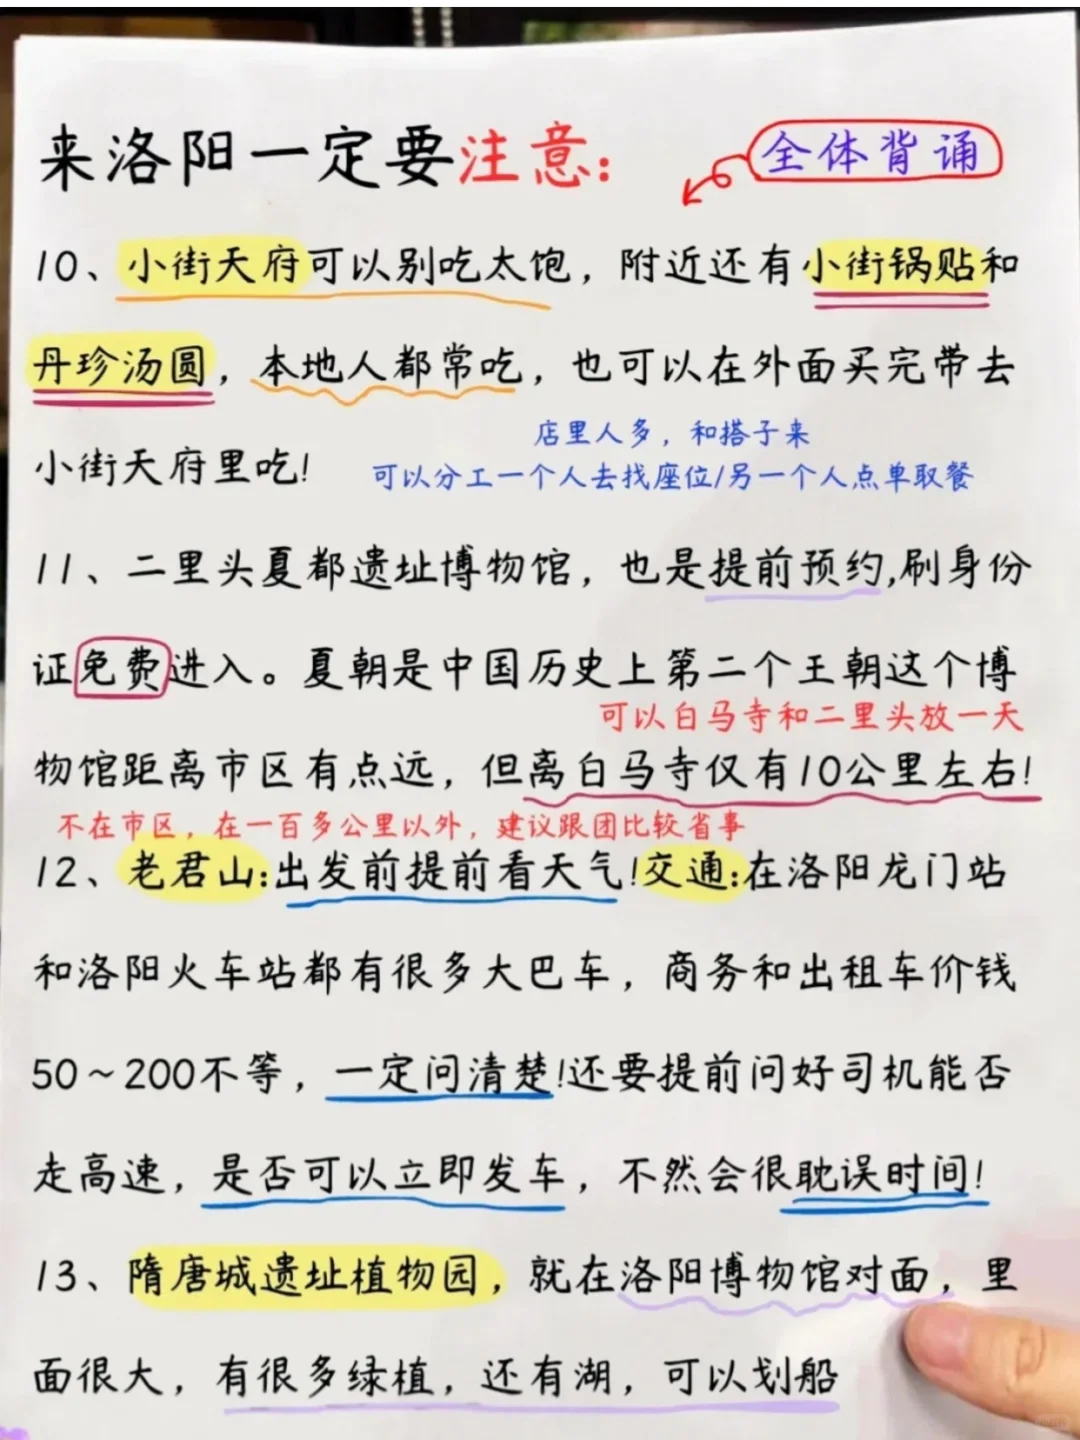 来洛阳一定要注意:
全体背诵
10、小街天府可以别吃太饱，附近还有小街锅贴和
丹珍汤圆，本地人都常吃，也可以在外面买完带去
店里人多，和搭子来
小街天府里吃!
可以分工一个人去找座位/另一个人点单取餐
11、二里头夏都遗址博物馆，也是提前预约,刷身份
证免费进入。夏朝是中国历史上第二个王朝这个博
可以白马寺和二里头放一天
物馆距离市区有点远，但离白马寺仅有10公里左右!
不在市区，在一百多公里以外，建议跟团比较省事
12、老君山:出发前提前看天气!交通:在洛阳龙门站
和洛阳火车站都有很多大巴车，商务和出租车价钱
50~200不等，一定问清楚!还要提前问好司机能否
走高速，是否可以立即发车，不然会很耽误时间!
13、隋唐城遗址植物园，就在洛阳博物馆对面，里
面很大，有很多绿植，还有湖，可以划船